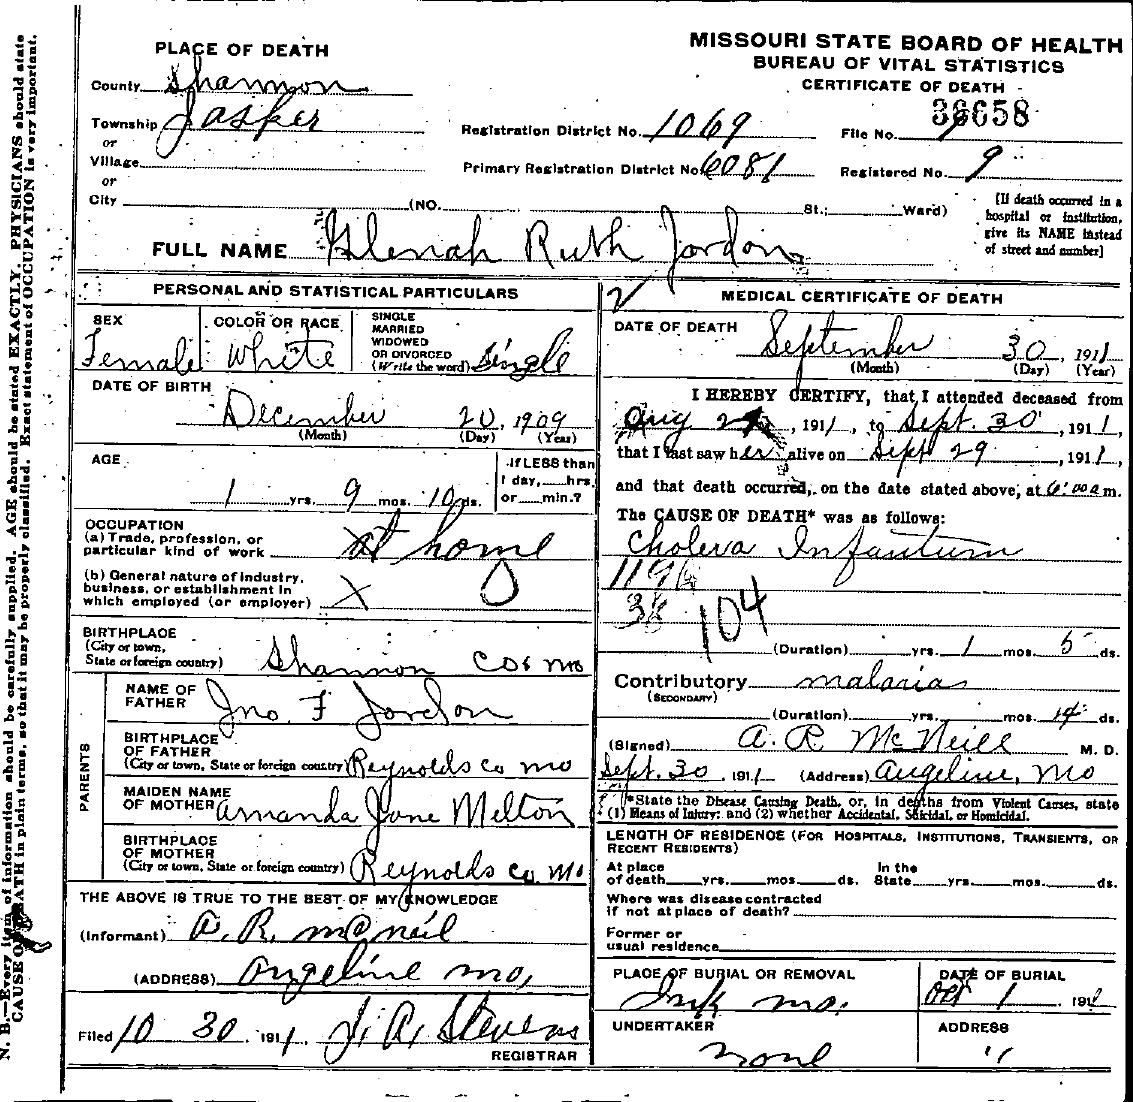 MISSOURI STATE BOARD OF HEALTH
BUREAU OF VITAL STATISTICS
CERTIFICATE OF DEATH
PLACE OF DEATH
County Shannon
Township Jasper
or
Village
or
City (NO. St.; Ward)
Registration District No. 1069
File No. 36658
Primary Registration District No. 6081
Registered No. 9
[If death occurred in a
hospital or institution,
give its NAME instead
of street and number]
FULL NAME Glenah Ruth Jordon
PERSONAL AND STATISTICAL PARTICULARS
SEX
Female
COLOR OR RACE
White
SINGLE
MARRIED
WIDOWED
OR DIVORCED
(Write the word) Single
DATE OF BIRTH
December 20, 1909
(Month) (Day) (Year)
AGE
1 yrs. 9 mos. 10 ds.
If LESS than
1 day, hrs.
or min.?
OCCUPATION
(a) Trade, profession, or
particular kind of work at home
(b) General nature of industry,
business, or establishment in
which employed (or employer) X
BIRTHPLACE
(City or town,
State or foreign country) Shannon Co. Mo
PARENTS
NAME OF
FATHER Jno. F Jordon
BIRTHPLACE
OF FATHER
(City or town, State or foreign country) Reynolds co mo
MAIDEN NAME
OF MOTHER Amanda Jane Melton
BIRTHPLACE
OF MOTHER
(City or town, State or foreign country) Reynolds Co. Mo
THE ABOVE IS TRUE TO THE BEST OF MY KNOWLEDGE
(Informant) A. R. McNeil
(ADDRESS) Angeline Mo,
Filed 10 30, 1911, J. A. Stevens
REGISTRAR
MEDICAL CERTIFICATE OF DEATH
DATE OF DEATH September 30, 1911
(Month) (Day) (Year)
I HEREBY CERTIFY, that I attended deceased from
Aug 2, 1911, to Sept. 30, 1911,
that I last saw her alive on Sept 29, 1911,
and that death occurred, on the date stated above, at 6:00 a m.
The CAUSE OF DEATH* was as follows:
Cholera Infantum
119
38
104
(Duration) yrs. 1 mos. 5 ds.
Contributory malaria
(SECONDARY)
(Duration) yrs. mos. 14 ds.
(Signed) A. R McNeill M. D.
Sept. 30, 1911 (Address) Angeline, Mo
*State the Disease Causing Death, or, in deaths from Violent Causes, state
(1) Means of Injury; and (2) whether Accidental, Suicidal, or Homicidal.
LENGTH OF RESIDENCE (FOR HOSPITALS, INSTITUTIONS, TRANSIENTS, OR
RECENT RESIDENTS)
At place
of death yrs. mos. ds.
In the
State yrs. mos. ds.
Where was disease contracted
if not at place of death?
Former or
usual residence
PLACE OF BURIAL OR REMOVAL
Ink Mo.
DATE OF BURIAL
Oct 1, 1911
UNDERTAKER
none
ADDRESS
"
N. B.—Every item of information should be carefully supplied. AGE should be stated EXACTLY. PHYSICIANS should state
CAUSE OF DEATH in plain terms, so that it may be properly classified. Exact statement of OCCUPATION is very important.